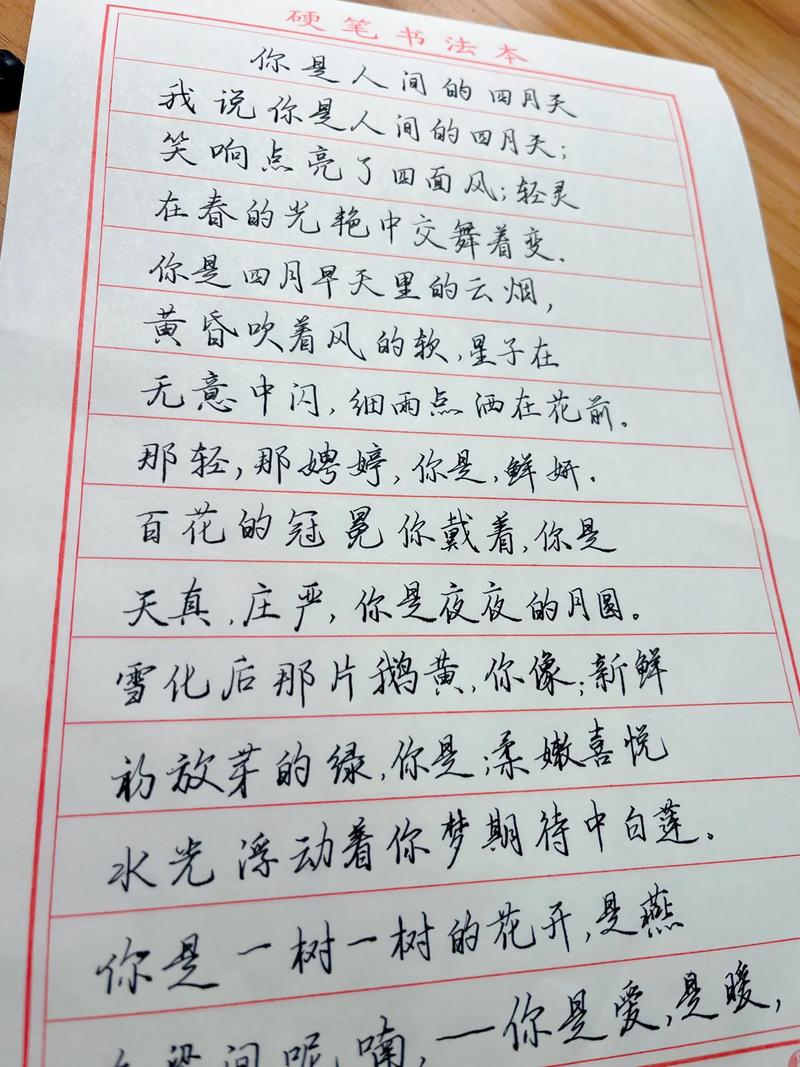 硬笔书法本
你是人间的四月天
我说你是人间的四月天；
笑响点亮了四面风；轻灵
在春的光艳中交舞着变.
你是四月早天里的云烟，
黄昏吹着风的软，星子在
无意中闪，细雨点洒在花前。
那轻，那娉婷，你是，鲜妍.
百花的冠冕你戴着，你是
天真，庄严，你是夜夜的月圆。
雪化后那片鹅黄，你像；新鲜
初放芽的绿，你是；柔嫩喜悦
水光浮动着你梦期待中白莲。
你是一树一树的花开，是燕
在梁间呢喃，—你是爱，是暖，